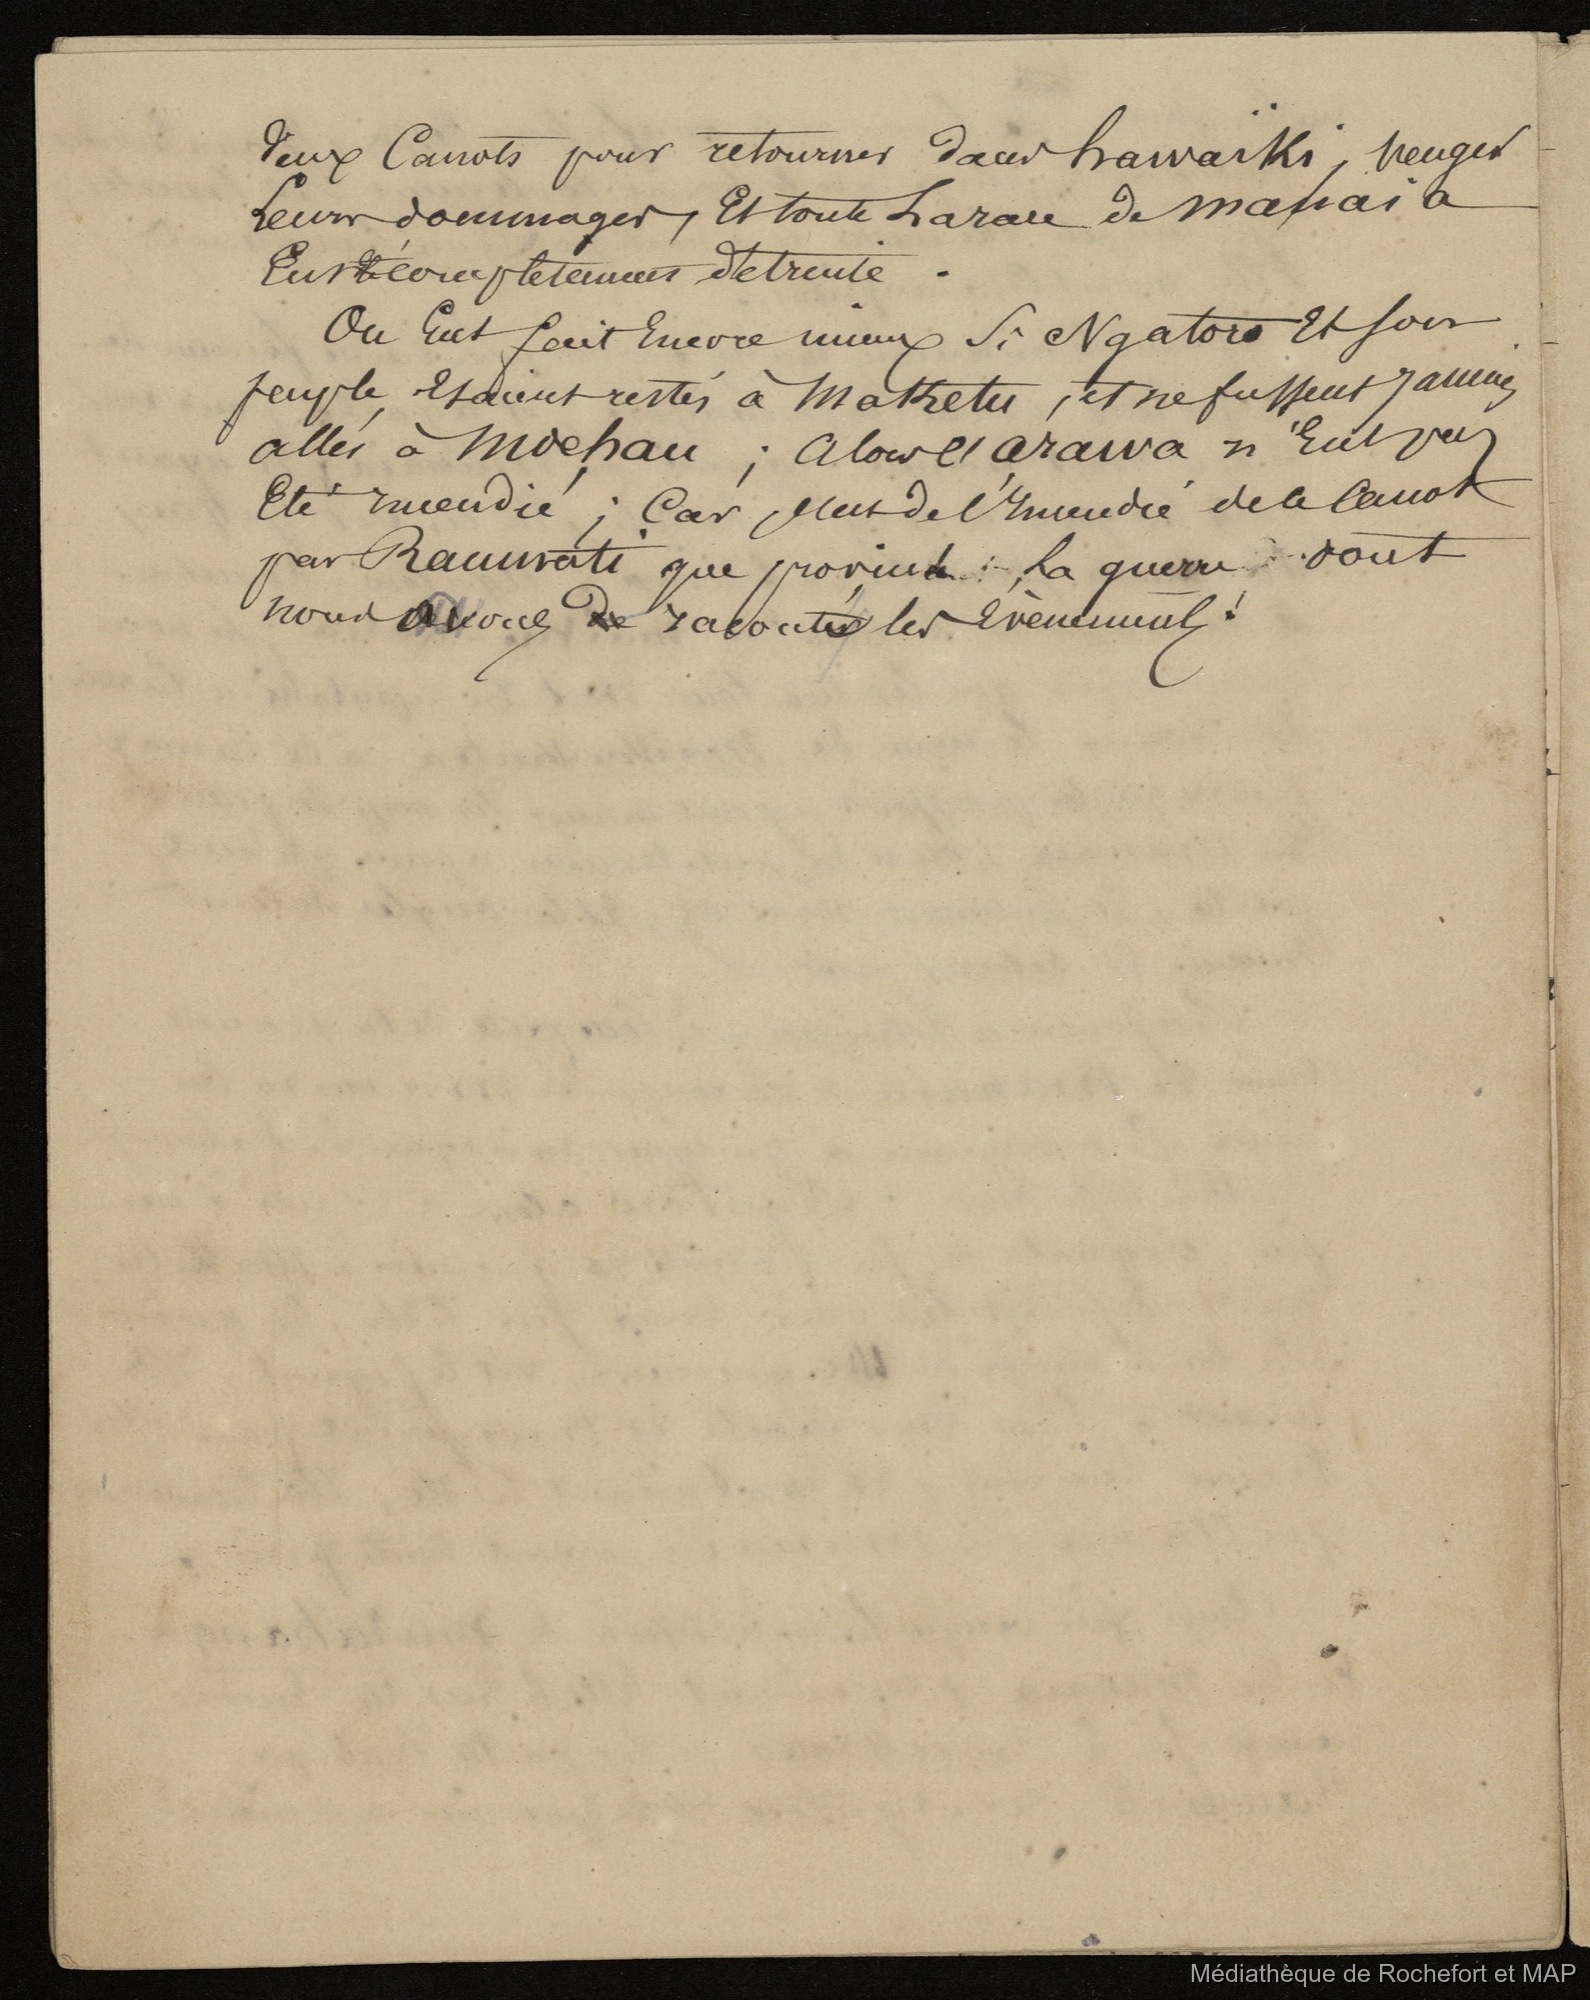 deux Canots pour retourner dans hawaïki, venger
Leurs dommages, Et toute La race de Manaia
Eut été completement détruite.
On Eut fait Encore mieux Si Ngatoro Et son
peuple Etaient restés à Maketu, et ne fussent jamais
allés à Moehau ; Alors l'Arawa n'Eut pas
Eté incendié ; Car c'est de l'incendie de le Canot
par Raumati que provint la guerre dont
nous avons raconté les Evènements !
Médiathèque de Rochefort et MAP